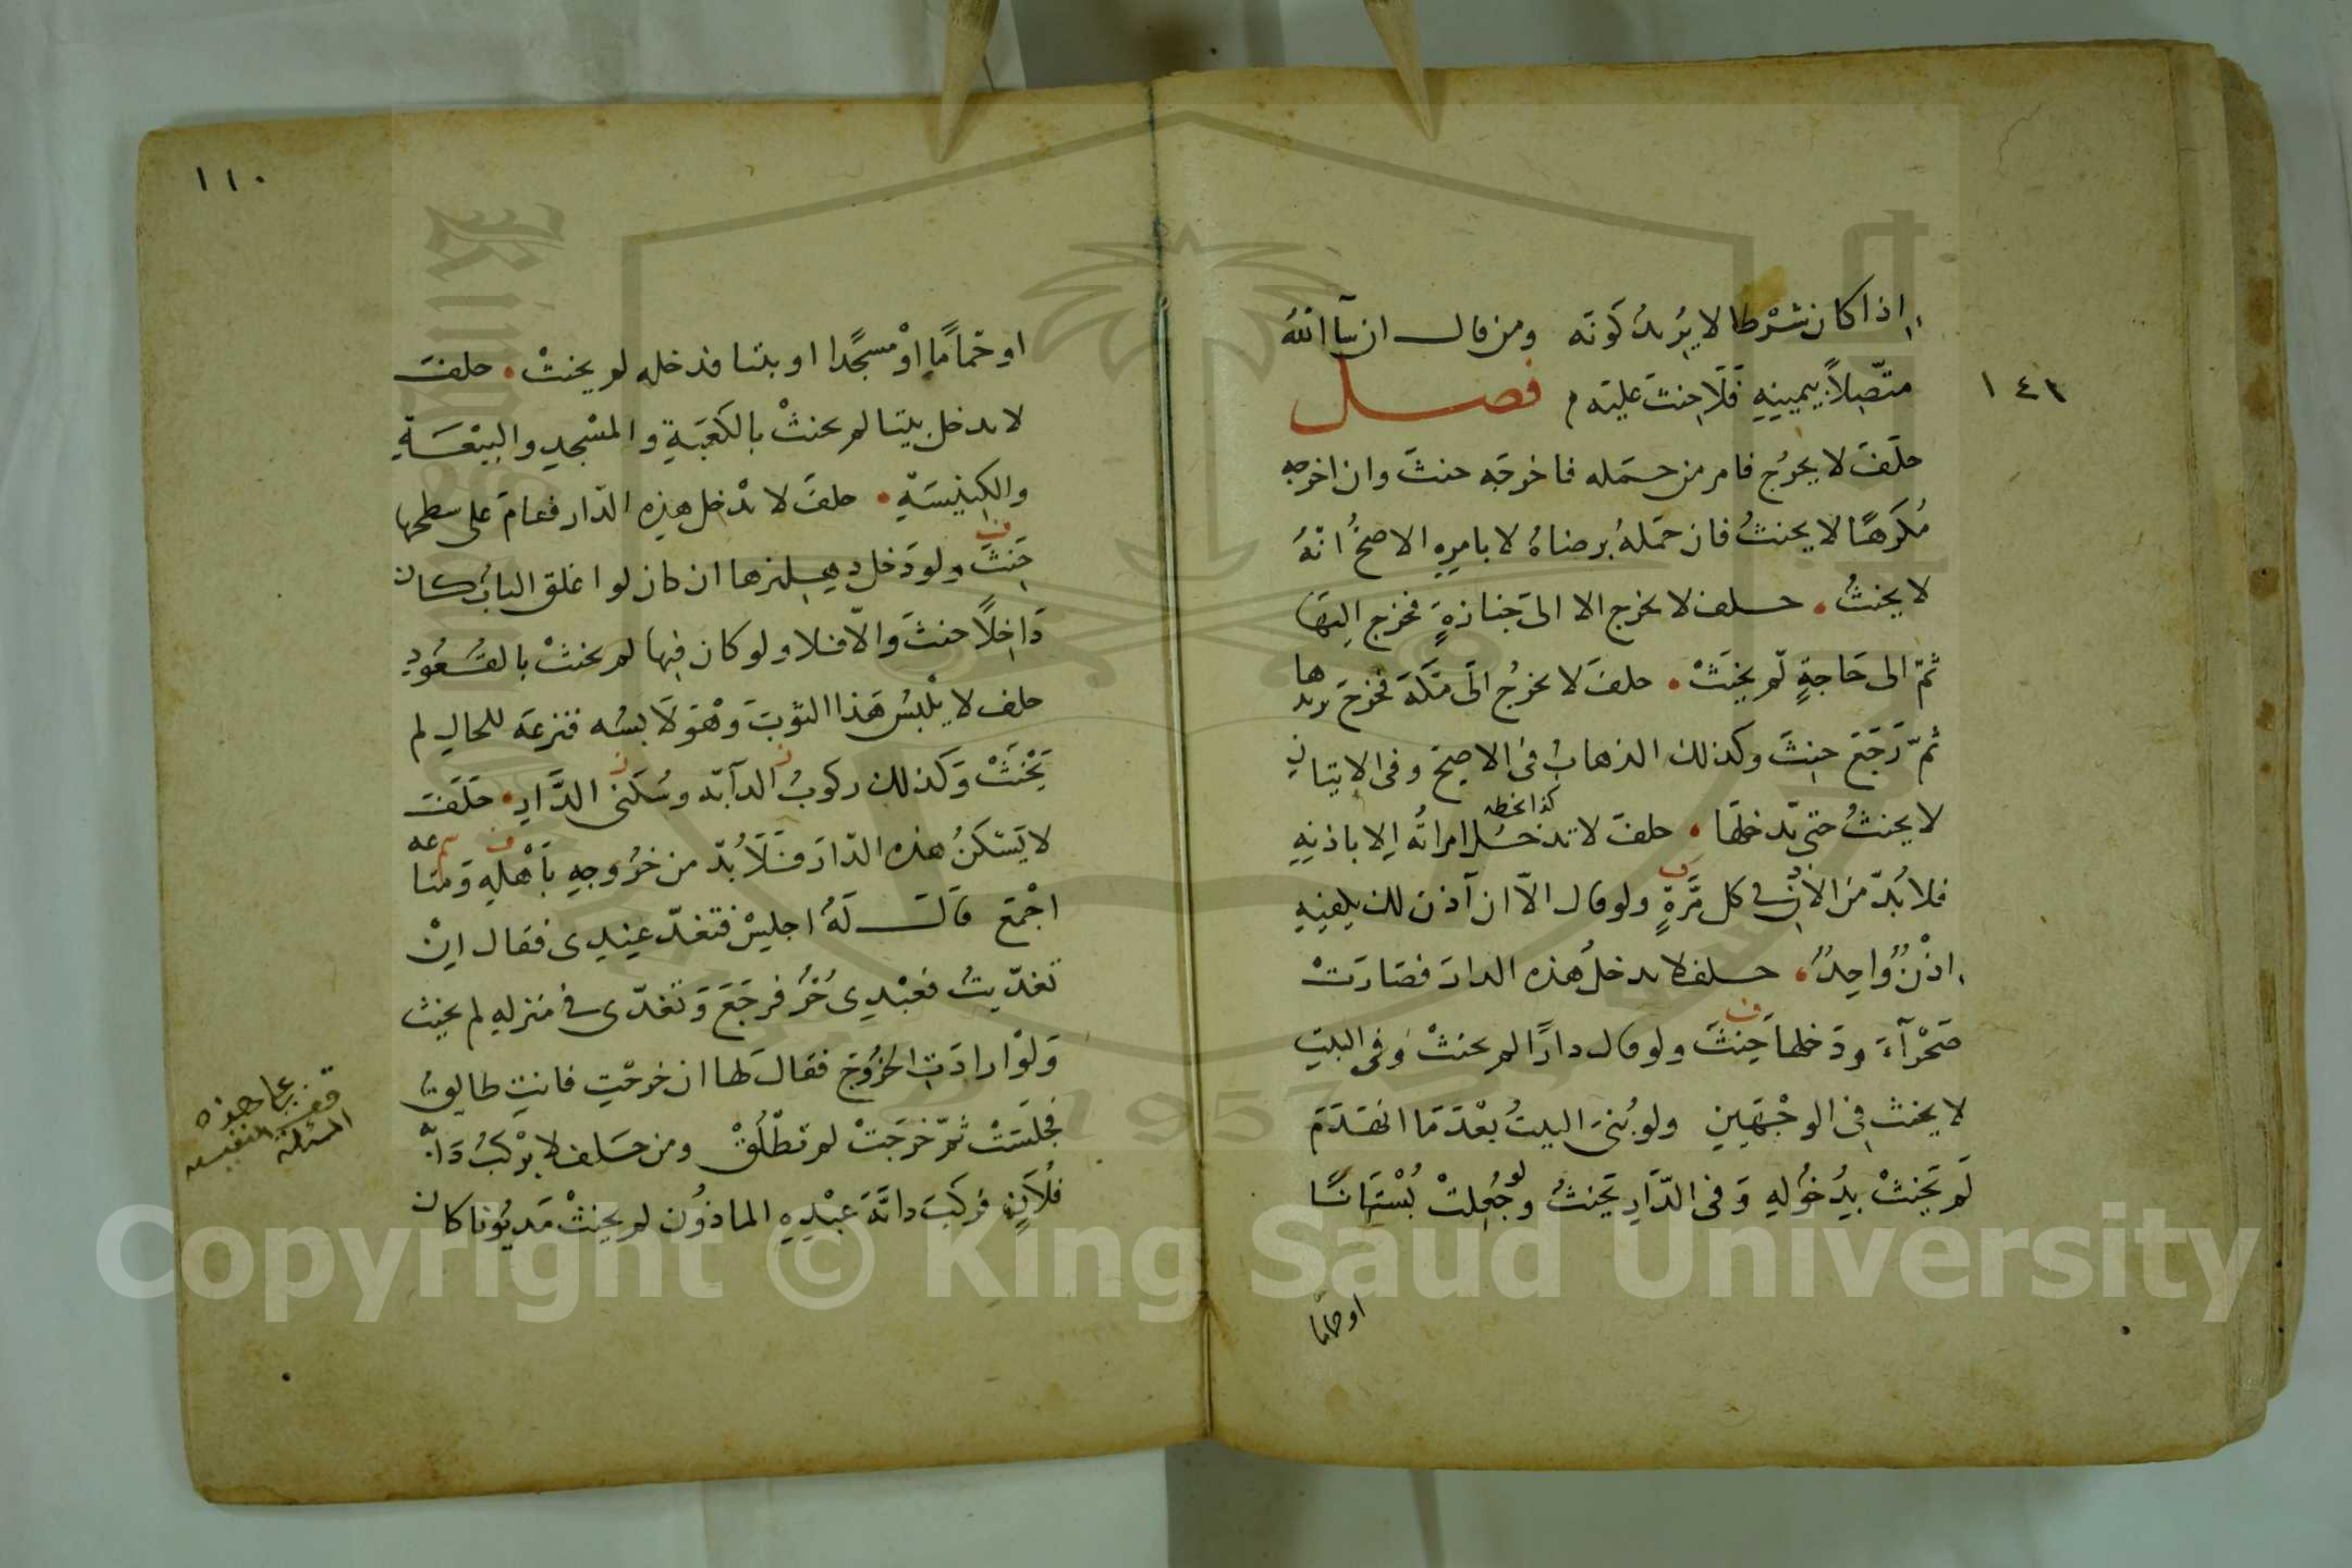 اذا كان شرطا لا يريد كونه ومن قال ان شآ الله
متصلا بيمينه فلا حنث عليه م فصل
١٤١
حلف لا يخرج فامر من حمله فاخرجه حنث وان اخرجه
مكرها لا يحنث فان حمله برضاه لا بامره الاصح انه
لا يحنث • حلف لا يخرج الا الى جنازة فخرج اليها
ثم الى حاجة لم يحنث • حلف لا يخرج الى مكة فخرج يريدها
ثم رجع حنث وكذلك الذهاب في الاصح وفي الاتيان
لا يحنث حتى يدخلها • حلف لا تدخل امراته الا باذنه
كذا بخطه
فلا بد من الاذن في كل مرة ولو قال الا ان آذن لك يكفيه
اذن واحد • حلف لا يدخل هذه الدار فصارت
صحرآء ودخلها حنث ولو قال دارا لم يحنث وفي البيت
لا يحنث في الوجهين ولو بني البيت بعدما انهدم
لم يحنث بدخوله وفي الدار يحنث ولو جعلت بستانا
او حماما
١١٠
او حماما او مسجدا او بيتا فدخله لم يحنث • حلف
لا يدخل بيتا لم يحنث بالكعبة والمسجد والبيعة
والكنيسة • حلف لا يدخل هذه الدار فقام على سطحها
حنث ولو دخل دهليزها ان كان لو اغلق الباب كان
داخلا حنث والا فلا ولو كان فيها لم يحنث بالقعود
حلف لا يلبس هذا الثوب وهو لابسه فنزعه للحال لم
يحنث وكذلك ركوب الدآبة وسكنى الدار • حلف
لا يسكن هذه الدار فلا بد من خروجه باهله ومتاعه
اجمع قال له اجلس فتغد عندي فقال ان
تغديت فعبدي حر فرجع وتغدى في منزله لم يحنث
ولو ارادت الخروج فقال لها ان خرجت فانت طالق
فجلست ثم خرجت لم تطلق ومن حلف لا يركب دابة
فلان فركب دابة عبده الماذون لم يحنث مديونا كان
قف على هذه
المسئلة النفيسه
Copyright © King Saud University
1957